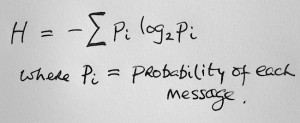 H = -∑ Pi log₂ Pi
where Pi = PROBABILITY of each
message.